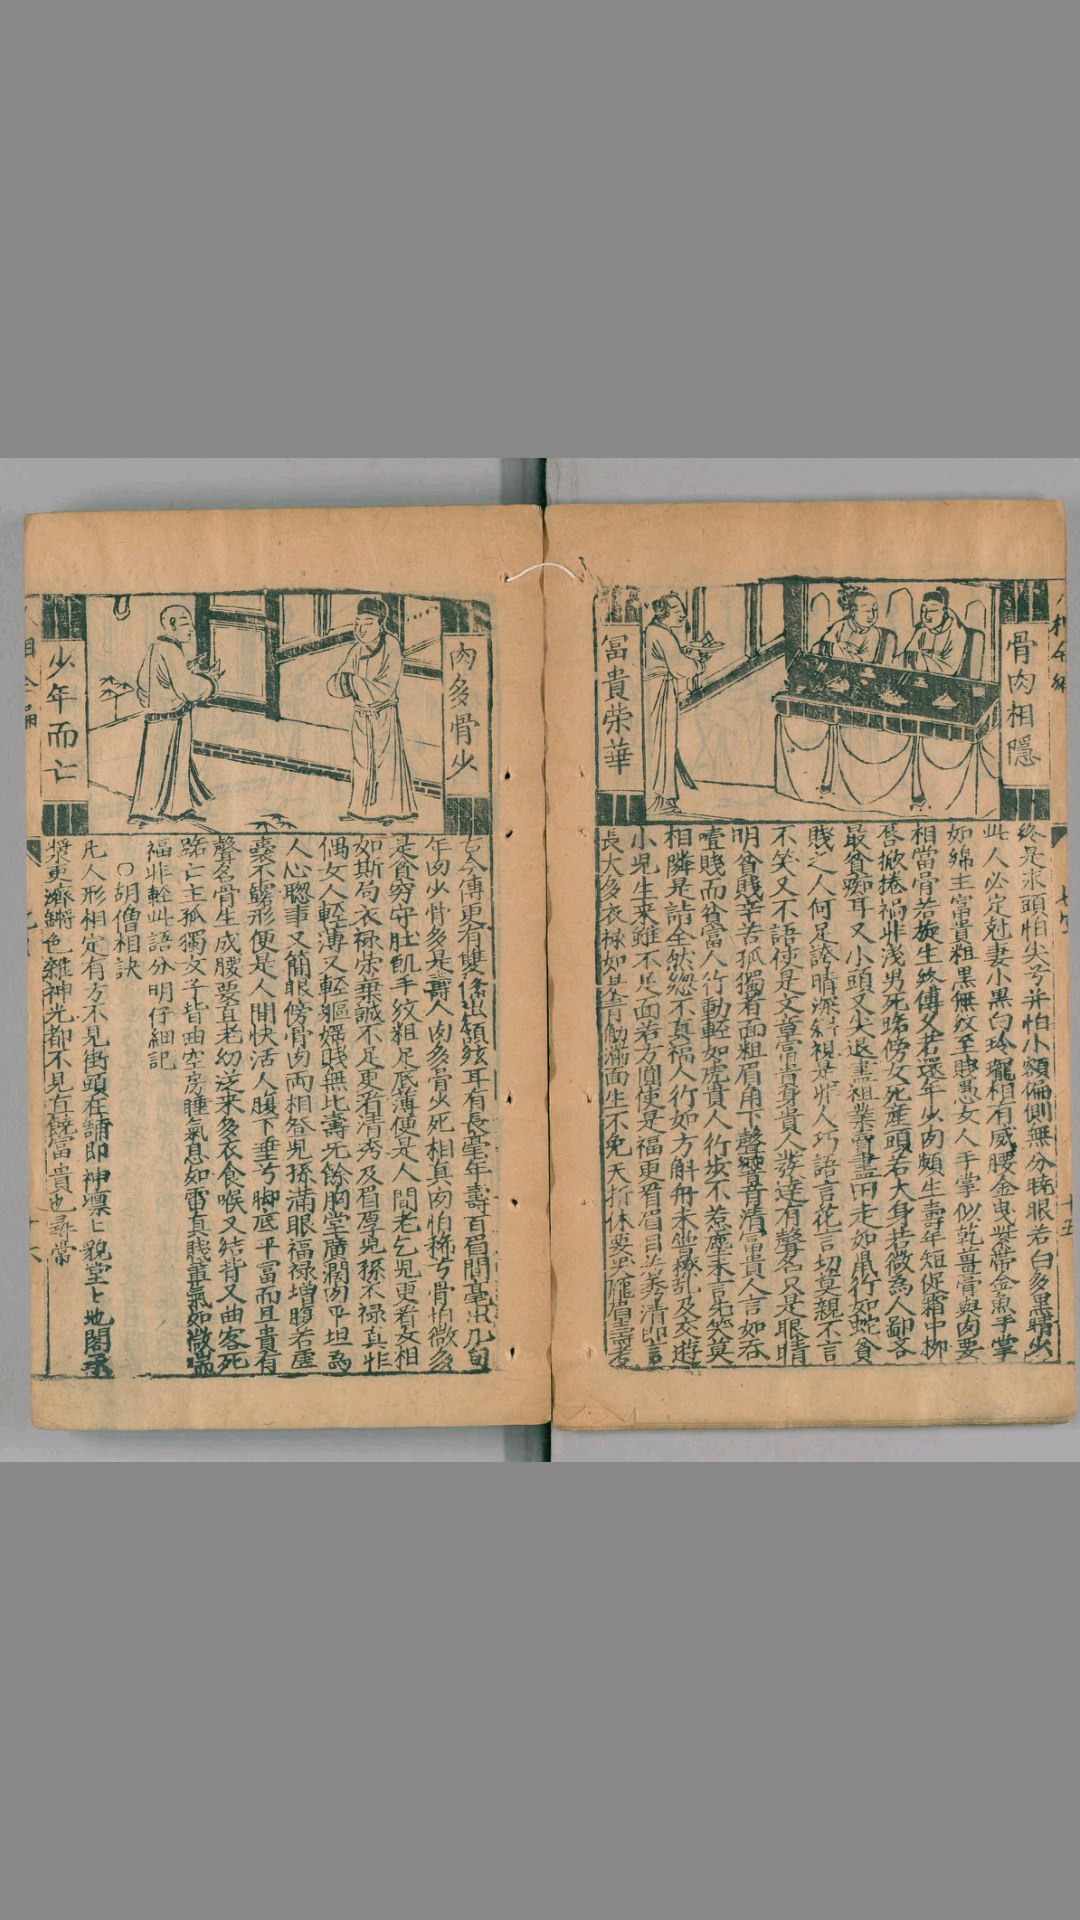 骨肉相隱
富貴荣華
終是求頭怕尖兮并怕小額偏側無分曉眼若白多黒睛少
此人必定尅妻小黒白玲瓏相有威腰金曳紫帶金魚手掌
如綿主富貴粗黒無紋至賤愚女人手掌似乾薑骨與肉要
相當骨若旋生終傳又若還年少肉頗生壽年短促霜中柳
唇掀捲禍非淺男死路傍女死産頭若大身若微為人鄙吝
最貧痴耳又小頭又尖退盡祖業賣盡田走如鼠行如蛇貧
賤之人何足誇睛深斜視是非人巧語言花言切莫親不言
不笑又不語便是文章富貴身貴人發達有聲名只是眼睛
明貧賤辛苦孤獨者面粗眉角下聲音清富貴人言如吞
噎賤而貧富人行動軽如虎貴人行步不惹塵未言先笑莫
相隣是詰全然總不真福人行如方斛舟未曾撩乱及交遊
小児生来雖不足面若方圓便是福更看眉目若秀清即言
長大多衣禄如是青觔滿面生不免夭折体要
肉多骨少
少年而亡
古今傳更有雙絛出頷絃耳有長毫年壽百眉間毫出九旬
年肉少骨多是壽人肉多骨少死相真肉怕稀兮骨怕微多
是貧窮守肚飢手紋粗足底薄便是人間老乞児更看女相
如斯局衣禄荣華誠不足更看清秀及眉厚児孫不禄真非
偶女人軽薄又軽軀婬賤無比壽无餘胸堂廣濶肉平坦爲
人心聰事又簡眼傍骨肉兩相咎児孫滿眼福禄増腸若虛
囊不露形便是人間快活人腹下垂兮脚底平富而且貴有
聲名骨生成腰要直老幼泛来多衣食喉又结背又曲客死
路亡主孤獨女子背曲空房睡氣息如雷真賤輩氣如微喘
福非軽此語分明仔細記
〇胡僧相訣
凢人形相定有方不見街頭在舗即神凛ヒ貌堂ヒ地閣承
漿更濟鏘色雜神光都不見直饒富貴也尋常